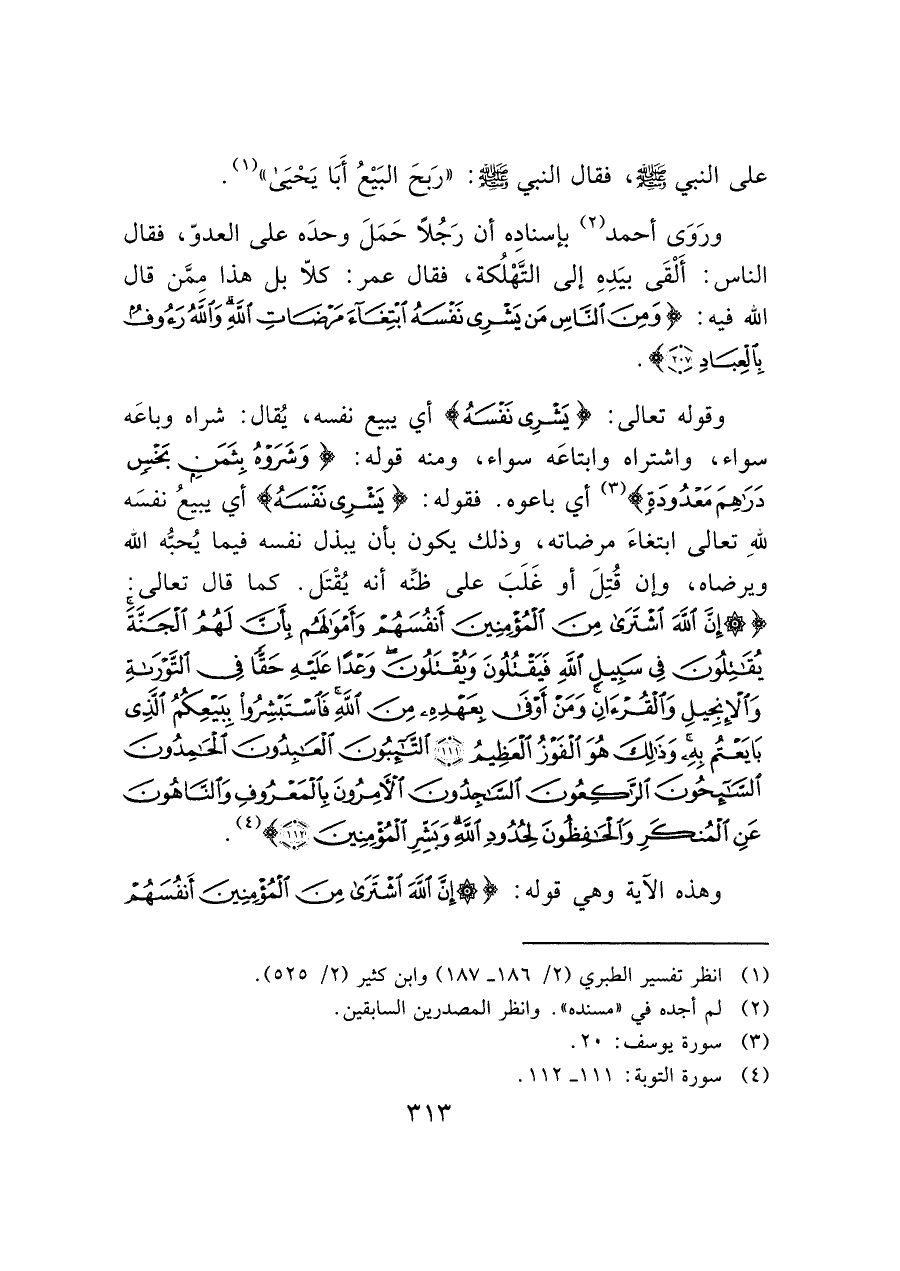 على النبي ﷺ، فقال النبي ﷺ: «رَبحَ البَيْعُ أَبَا يَحْيَىٰ»(١).
ورَوَى أحمد(٢) بإسنادِه أن رَجُلاً حَمَلَ وحدَه على العدوّ، فقال
الناس: أَلْقَى بيَدِهِ إلى التَّهْلُكة، فقال عمر: كلاّ بل هذا مِمَّن قال
الله فيه: ﴿وَمِنَ ٱلنَّاسِ مَن يَشْرِى نَفْسَهُ ٱبْتِغَآءَ مَرْضَاتِ ٱللَّهِۗ وَٱللَّهُ رَءُوفٌۢ
بِٱلْعِبَادِ ٢٠٧﴾.
وقوله تعالى: ﴿يَشْرِى نَفْسَهُ﴾ أي يبيع نفسه، يُقال: شراه وباعَه
سواء، واشتراه وابتاعَه سواء، ومنه قوله: ﴿وَشَرَوْهُ بِثَمَنٍۭ بَخْسٍ
دَرَٰهِمَ مَعْدُودَةٍ﴾(٣) أي باعوه. فقوله: ﴿يَشْرِى نَفْسَهُ﴾ أي يبيعُ نفسَه
للهِ تعالى ابتغاءَ مرضاته، وذلك يكون بأن يبذل نفسه فيما يُحبُّه الله
ويرضاه، وإن قُتِلَ أو غَلَبَ على ظنِّه أنه يُقْتَل. كما قال تعالى:
﴿۞ إِنَّ ٱللَّهَ ٱشْتَرَىٰ مِنَ ٱلْمُؤْمِنِينَ أَنفُسَهُمْ وَأَمْوَٰلَهُم بِأَنَّ لَهُمُ ٱلْجَنَّةَۚ
يُقَٰتِلُونَ فِى سَبِيلِ ٱللَّهِ فَيَقْتُلُونَ وَيُقْتَلُونَۖ وَعْدًا عَلَيْهِ حَقًّا فِى ٱلتَّوْرَىٰةِ
وَٱلْإِنجِيلِ وَٱلْقُرْءَانِۚ وَمَنْ أَوْفَىٰ بِعَهْدِهِۦ مِنَ ٱللَّهِۚ فَٱسْتَبْشِرُوا۟ بِبَيْعِكُمُ ٱلَّذِى
بَايَعْتُم بِهِۦۚ وَذَٰلِكَ هُوَ ٱلْفَوْزُ ٱلْعَظِيمُ ١١١ ٱلتَّٰٓئِبُونَ ٱلْعَٰبِدُونَ ٱلْحَٰمِدُونَ
ٱلسَّٰٓئِحُونَ ٱلرَّٰكِعُونَ ٱلسَّٰجِدُونَ ٱلْءَامِرُونَ بِٱلْمَعْرُوفِ وَٱلنَّاهُونَ
عَنِ ٱلْمُنكَرِ وَٱلْحَٰفِظُونَ لِحُدُودِ ٱللَّهِۗ وَبَشِّرِ ٱلْمُؤْمِنِينَ ١١٢﴾(٤).
وهذه الآية وهي قوله: ﴿۞ إِنَّ ٱللَّهَ ٱشْتَرَىٰ مِنَ ٱلْمُؤْمِنِينَ أَنفُسَهُمْ
(١) انظر تفسير الطبري (٢/ ١٨٦ـ ١٨٧) وابن كثير (٢/ ٥٢٥).
(٢) لم أجده في «مسنده». وانظر المصدرين السابقين.
(٣) سورة يوسف: ٢٠.
(٤) سورة التوبة: ١١١ـ ١١٢.
٣١٣